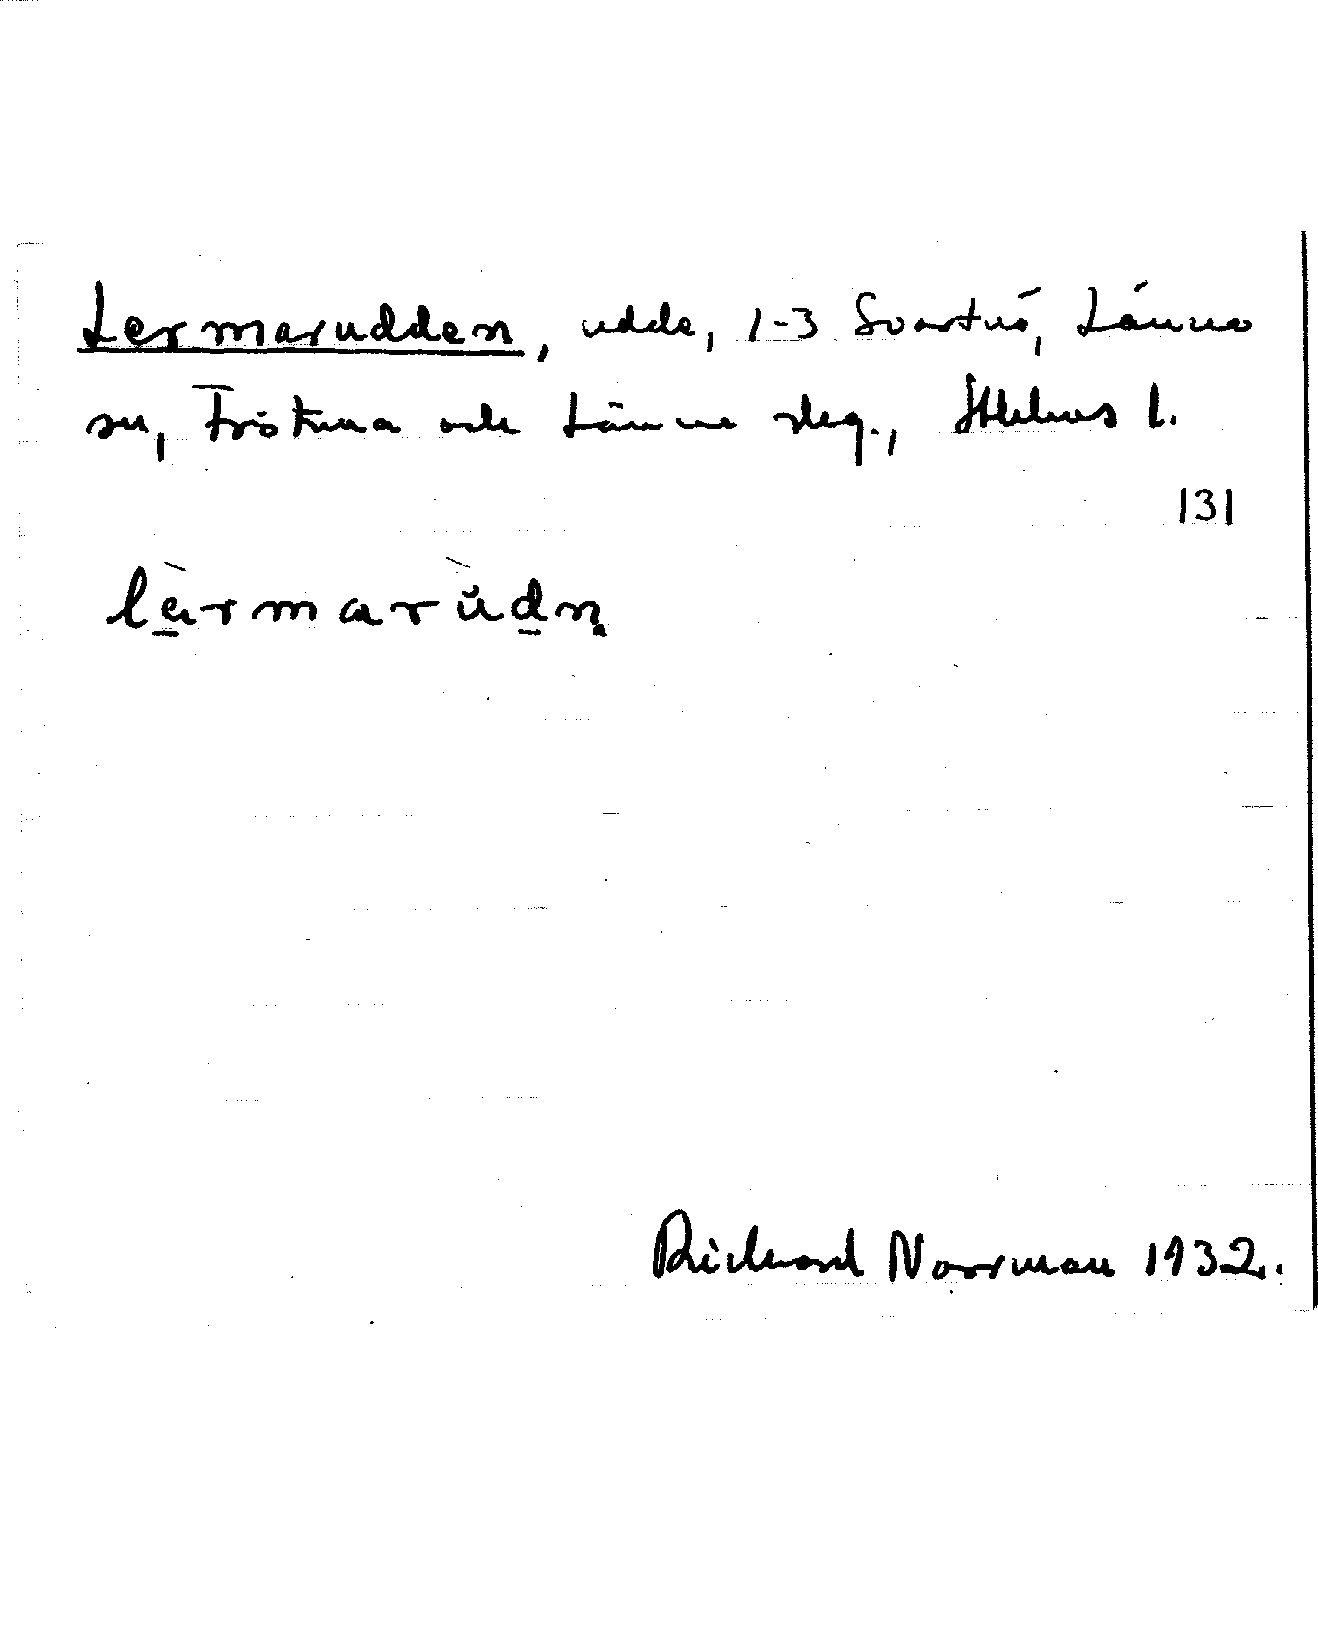 Lermarudden, udde, 1-3 Svartnö, Länna
sn, Frötuna och Länna skg., Sthlms l.
131
lärmarùdn
Richard Norrman 1932.